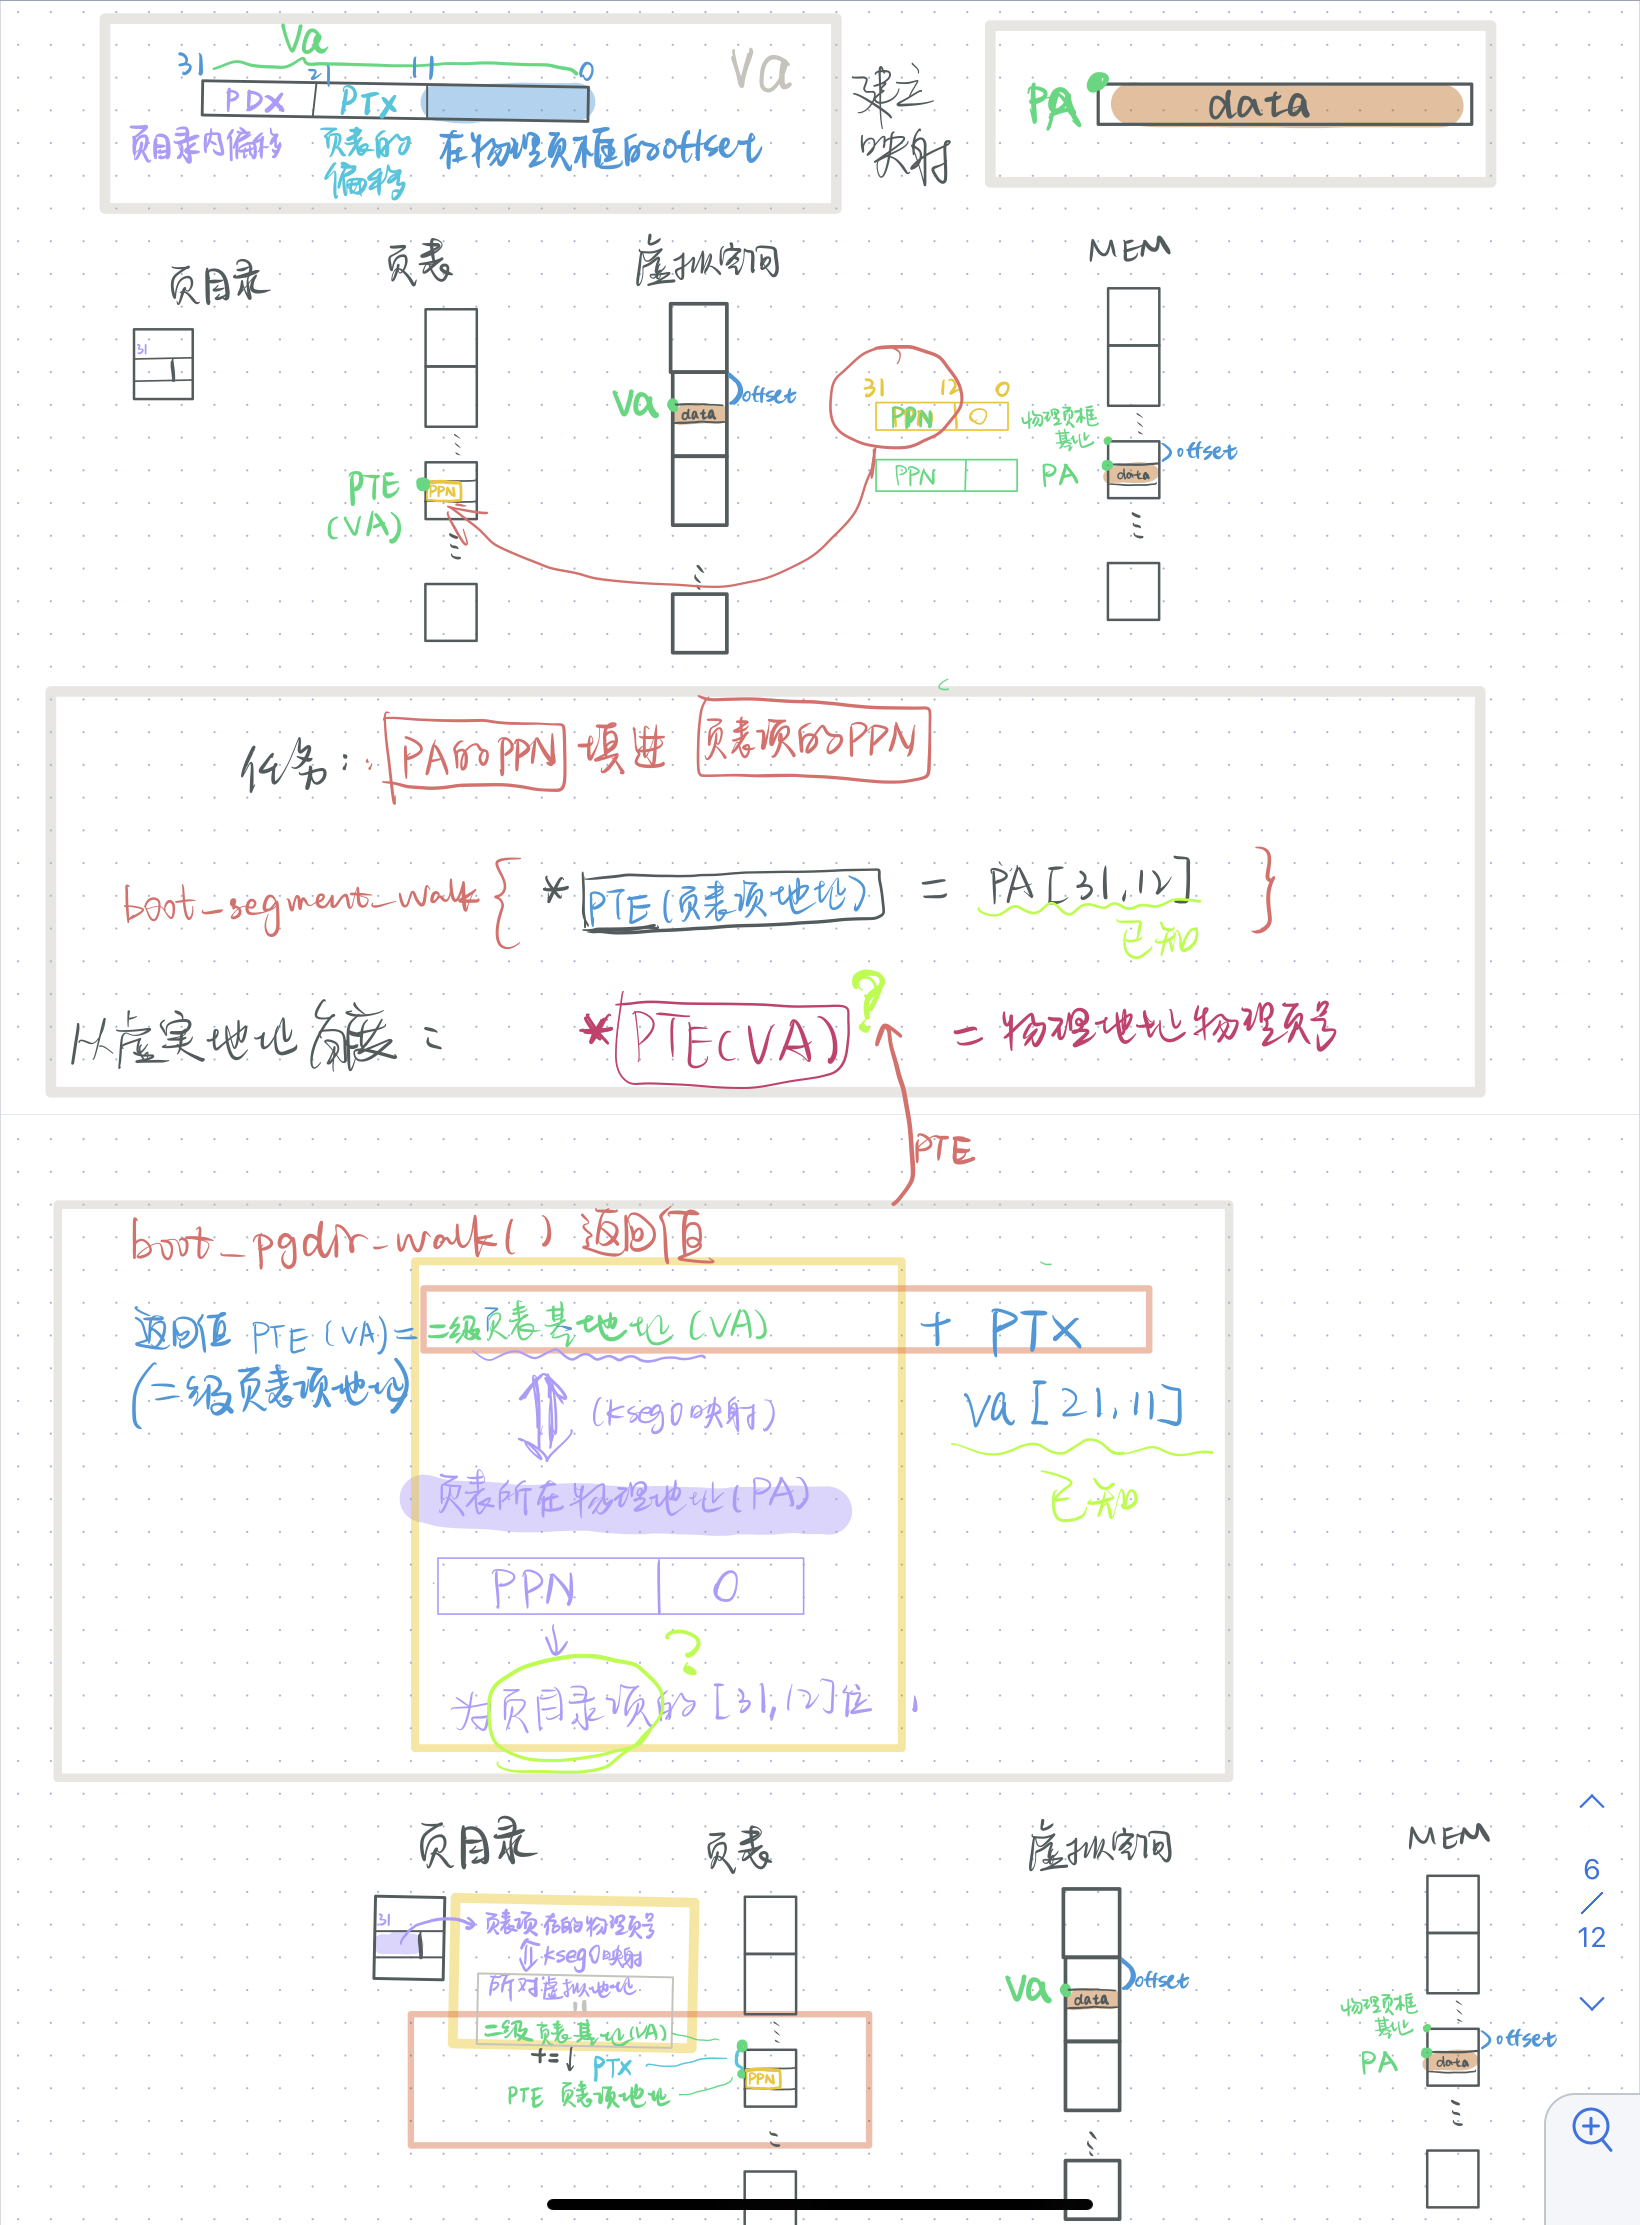 Va
31 21 11 0
PDX PTX
页目录内偏移 页表的偏移 在物理页框的offset
Va
建立
映射
PA data
页目录 页表 虚拟空间 MEM
31
Va data offset
31 12 0
PPN 0
PPN
物理页框
基地址
PA data offset
PTE
(VA)
PPN
任务: PA的PPN 填进 页表项的PPN
boot_segment_walk { * PTE(页表项地址) = PA[31,12] }
已知
从虚实地址角度: * PTE(VA) ? = 物理地址物理页号
PTE
boot_pgdir_walk() 返回值
返回值 PTE(VA) = 二级页表基地址(VA) + PTX
(二级页表项地址)
(kseg0映射) va[21,11]
已知
页表所在物理地址(PA)
PPN 0
?
为页目录项的[31,12]位
页目录 页表 虚拟空间 MEM
31
页表项在的物理页号
kseg0映射
所对虚拟地址
二级页表基地址(VA)
+= PTX
PTE 页表项地址
PPN
Va data offset
物理页框
基地址
PA data offset
6
/
12